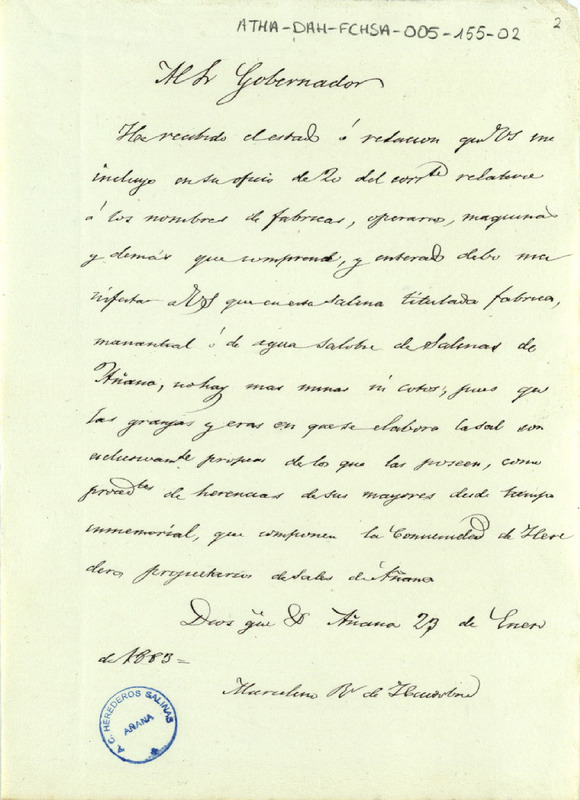 ATHA-DAH-FCHSA-005-155-02
2
Al Sr Gobernador
He recibido el estado ó relacion que VS me
incluye en su oficio de 20 del corrte relativo
á los nombres de fabricas, operarios, maquinas
y demás que comprende, y enterado debo ma
nifestar a VS que en esta Salina titulada fabrica,
manantial ó de agua salobre de Salinas de
Añana, no hay mas minas ni cotos, pues que
las granjas y eras en que se elabora la sal son
esclusivamte propias de los que las poseen, como
procedtes de herencias de sus mayores desde tiempo
inmemorial, que componen la Comunidad de Here
deros propietarios de Sales de Añana
Dios gue Añana 23 de Enero
de 1883=
Marcelino de
A.C. HEREDEROS SALINAS
AÑANA